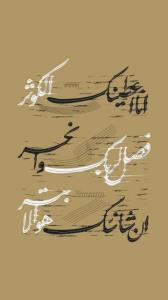 انا اعطینک الکوثر
فصل لربک وانحر
ان شانئک هو الابتر